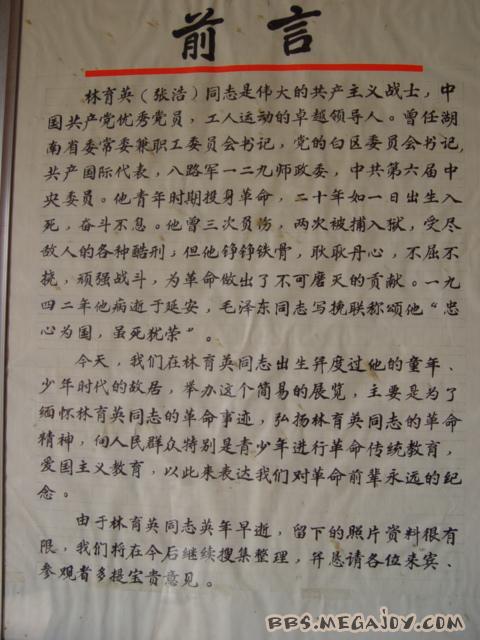 前言
林育英（张浩）同志是伟大的共产主义战士，中
国共产党优秀党员，工人运动的卓越领导人。曾任湖
南省委常委兼职工委员会书记，党的白区委员会书记，
共产国际代表，八路军一二九师政委，中共第六届中
央委员。他青年时期投身革命，二十年如一日出生入
死，奋斗不息。他曾三次负伤，两次被捕入狱，受尽
敌人的各种酷刑；但他铮铮铁骨，耿耿丹心，不屈不
挠，顽强战斗，为革命做出了不可磨灭的贡献。一九
四二年他病逝于延安，毛泽东同志写挽联称颂他“忠
心为国，虽死犹荣”。
今天，我们在林育英同志出生并度过他的童年、
少年时代的故居，举办这个简易的展览，主要是为了
缅怀林育英同志的革命事迹，弘扬林育英同志的革命
精神，向人民群众特别是青少年进行革命传统教育，
爱国主义教育，以此来表达我们对革命前辈永远的纪
念。
由于林育英同志英年早逝，留下的照片资料很有
限，我们将在今后继续搜集整理，并恳请各位来宾、
参观者多提宝贵意见。
BBS.MEGAJOY.COM